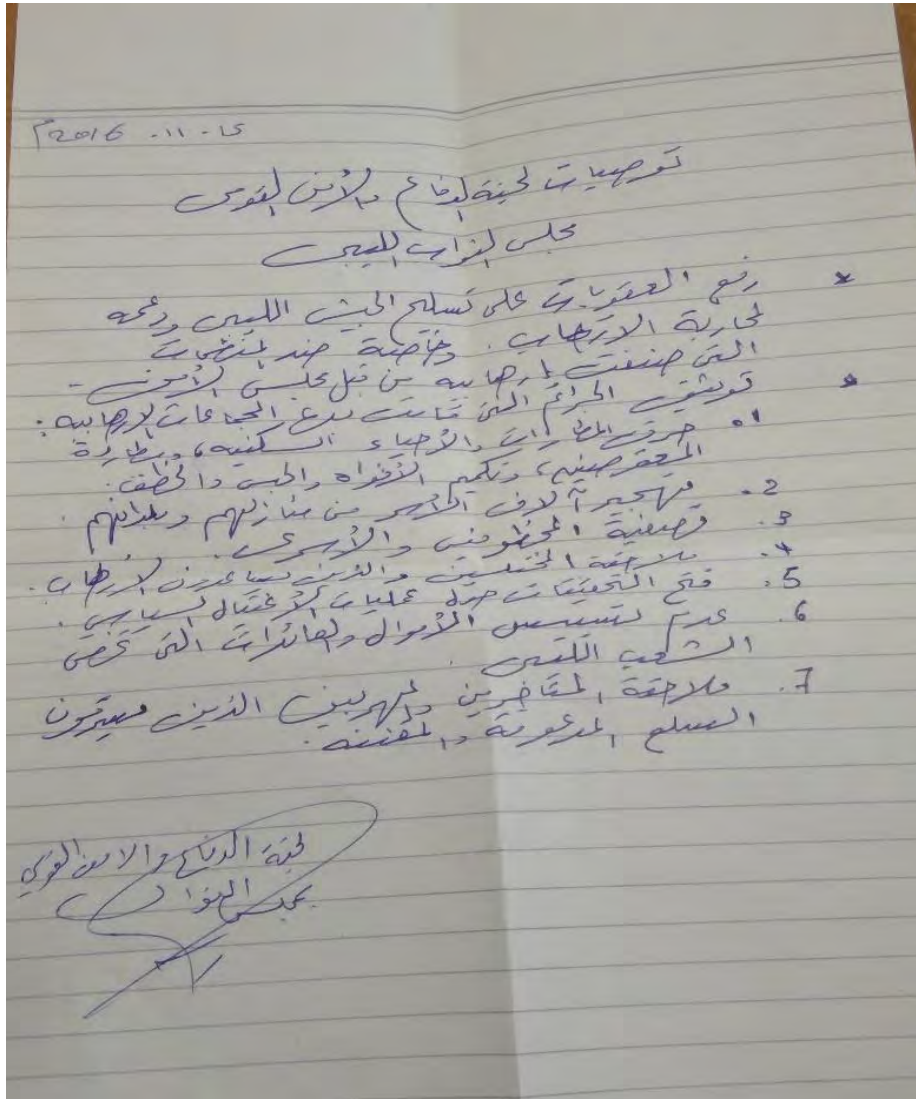 2016 - 11 - 15م
توصيات لجنة الدفاع والأمن القومي
مجلس النواب الليبي
* رفع العقوبات على تسليح الجيش الليبي ودعمه
لمحاربة الإرهاب. وخاصة ضد المنظمات
التي صنفت إرهابيه من قبل مجلس الأمن -
* توثيق الجرائم التي قامت بها الجماعات الإرهابيه:
1. حرق المطارات والأحياء السكنيه، ومطاردة
المعترضين، وتكميم الأفواه والحبس والخطف.
2. تهجير آلاف الأسر من منازلهم وبلداتهم.
3. تصفية المخطوفين والأسرى.
4. ملاحقة المختلسين والذين يساعدون الإرهاب.
5. فتح التحقيقات حول عمليات الاغتيال السياسي.
6. عدم تسييس الأموال والعائدات التي تخص
الشعب الليبي.
7. ملاحقة المتاجرين والمهربين الذين يسرقون
السلع المدعومة والمقننه.
لجنة الدفاع والامن القومي
بمجلس النواب